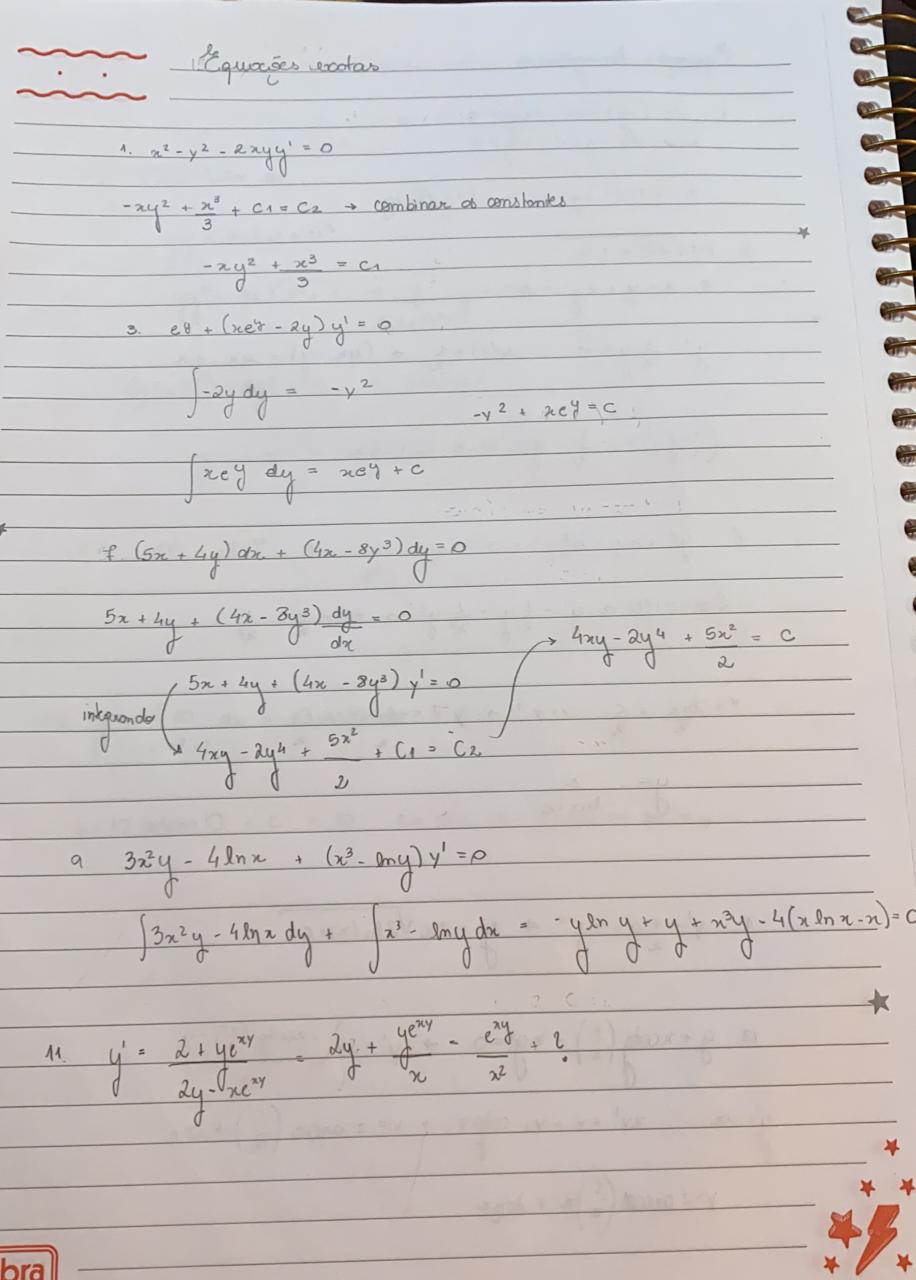 Equações exatas
1. x² - y² - 2xyy' = 0
-xy² + x³/3 + C1 = C2 → combinar as constantes
-xy² + x³/3 = C1
3. e^y + (xe^y - 2y) y' = 0
∫-2y dy = -y²
-y² + xe^y = C
∫xe^y dy = xe^y + C
7. (5x + 4y) dx + (4x - 8y³) dy = 0
5x + 4y + (4x - 8y³) dy/dx = 0
5x + 4y + (4x - 8y³) y' = 0
integrando
4xy - 2y⁴ + 5x²/2 + C1 = C2
→ 4xy - 2y⁴ + 5x²/2 = C
9 3x²y - 4 ln x + (x³ - ln y) y' = 0
∫3x²y - 4 ln x dy + ∫x³ - ln y dx = -y ln y + y + x³y - 4(x ln x - x) = C
11. y' = (2 + ye^xy)/(2y - xe^xy) = 2y + ye^xy/x - e^xy/x² + ?
bra